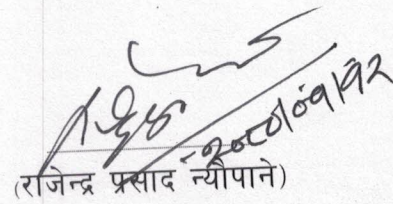 २०८०|०९|१२
(राजेन्द्र प्रसाद न्यौपाने)